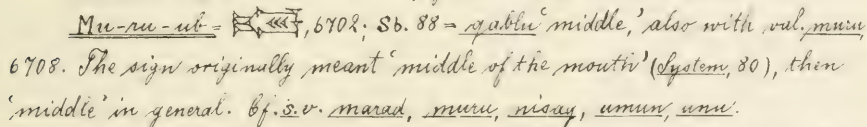 Mu-ru-ub = , 6702; Sb. 88 = qablu 'middle,' also with val. muru,
6708. The sign originally meant 'middle of the mouth' (System, 80), then
'middle' in general. Cf. s. v. marad, muru, nisag, umun, unu.